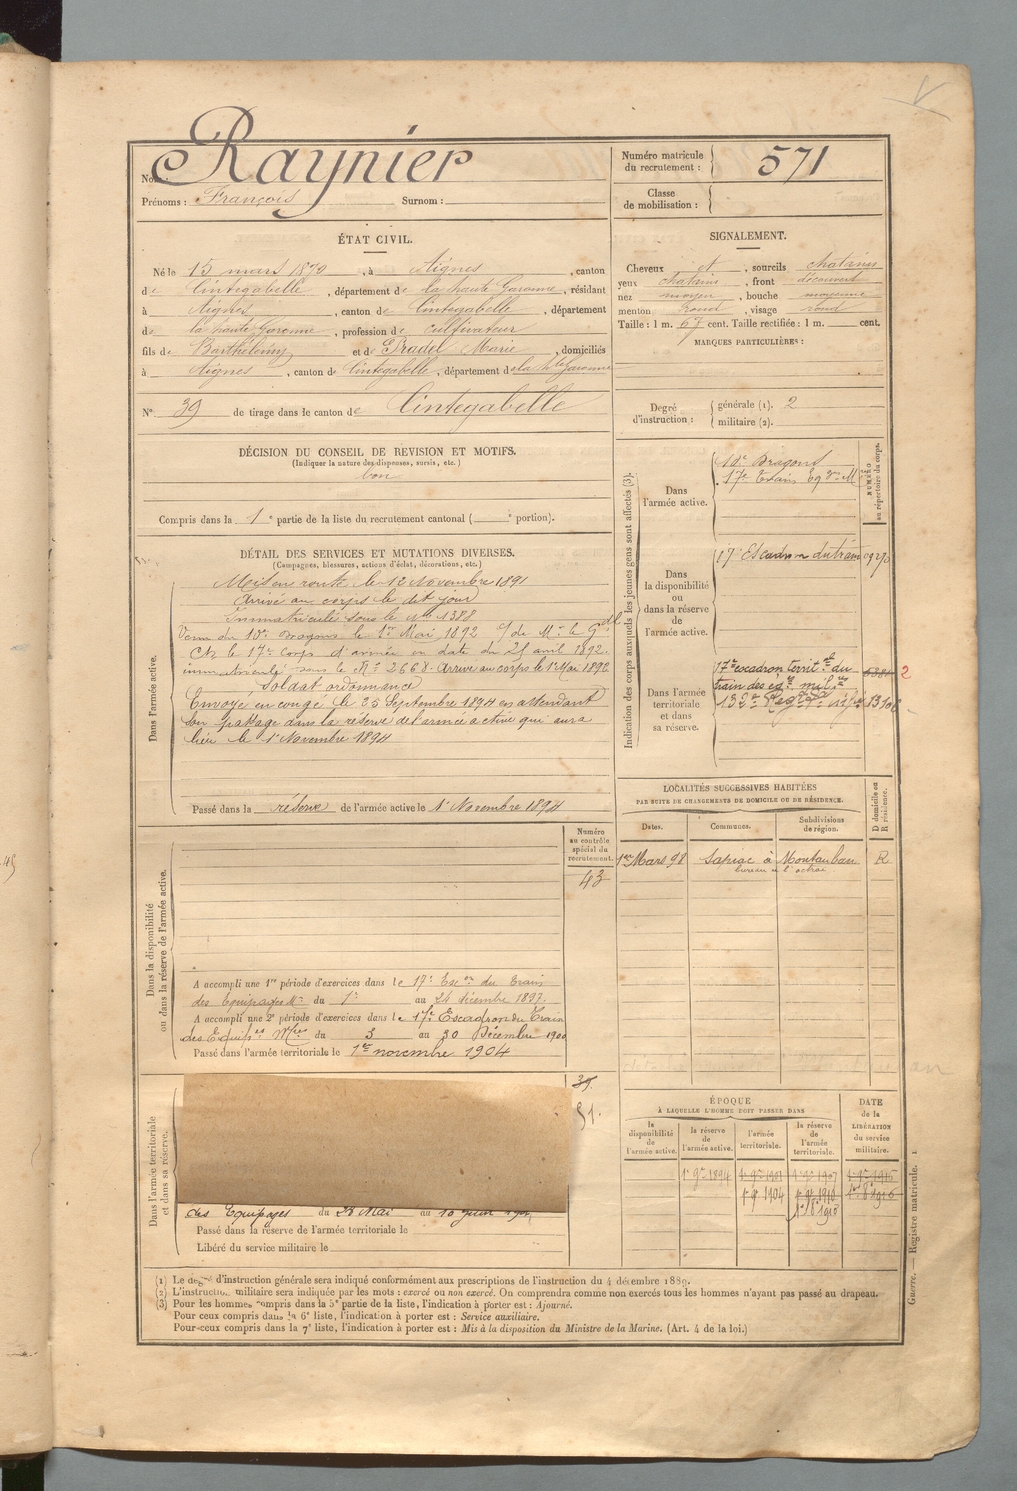 Nom : Raynier
Prénoms : François Surnom :
Numéro matricule du recrutement : 571
Classe de mobilisation :
ÉTAT CIVIL.
Né le 15 mars 1870, à Aignes, canton
de Cintegabelle, département de la haute Garonne, résidant
à Aignes, canton de Cintegabelle, département
de la haute Garonne, profession de cultivateur
fils de Barthélemy et de Pradel Marie, domiciliés
à Aignes, canton de Cintegabelle, département de la Hte Garonne
No 39 de tirage dans le canton de Cintegabelle
SIGNALEMENT.
Cheveux et, sourcils chatains
yeux chatains, front découvert
nez moyen, bouche moyenne
menton rond, visage rond
Taille : 1 m. 67 cent. Taille rectifiée : 1 m. cent.
MARQUES PARTICULIÈRES :
Degré d'instruction : générale (1). 2
militaire (2).
DÉCISION DU CONSEIL DE REVISION ET MOTIFS.
(Indiquer la nature des dispenses, sursis, etc.)
bon
Compris dans la 1e partie de la liste du recrutement cantonal ( e portion).
DÉTAIL DES SERVICES ET MUTATIONS DIVERSES.
(Campagnes, blessures, actions d'éclat, décorations, etc.)
Dans l'armée active.
Mis en route le 12 Novembre 1891
Arrivé au corps le dit jour
Immatriculé sous le No 1388
Venu du 10e Dragons le 1er Mai 1892 de Mr le Gal
Ct le 17e Corps d'armée en date du 25 avril 1892.
immatriculé sous le No 2668. Arrivé au corps le 1er Mai 1892
Soldat ordonnance
Envoyé en congé le 25 Septembre 1894 en attendant
son passage dans la réserve de l'armée active qui aura
lieu le 1er Novembre 1894
Passé dans la réserve de l'armée active le 1er Novembre 1894
Indication des corps auxquels les jeunes gens sont affectés (3).
NUMÉRO au répertoire du corps.
Dans l'armée active.
10e Dragons
17e Train Eq
Dans la disponibilité ou dans la réserve de l'armée active.
17e Escadron du train
Dans l'armée territoriale et dans sa réserve.
17e escadron territal du
train des éq. mil.
2
LOCALITÉS SUCCESSIVES HABITÉES
PAR SUITE DE CHANGEMENTS DE DOMICILE OU DE RÉSIDENCE.
Dates. Communes. Subdivisions de région. D domicile ou R résidence.
1er Mars 98 Sapiac à Montauban R
bureau de l'octroi
Numéro au contrôle spécial du recrutement.
43
Dans la disponibilité ou dans la réserve de l'armée active.
A accompli une 1re période d'exercices dans le 17e Escon du Train
des Equipages Mres du 1er au 24 décembre 1897.
A accompli une 2e période d'exercices dans le 17e Escadron du Train
des Equipges Mres du 3 au 30 Décembre 1900
Passé dans l'armée territoriale le 1er novembre 1904
Dans l'armée territoriale et dans sa réserve.
39
51.
des Equipages du 28 Mai au 10 juin
Passé dans la réserve de l'armée territoriale le
Libéré du service militaire le
ÉPOQUE
À LAQUELLE L'HOMME DOIT PASSER DANS
DATE de la LIBÉRATION du service militaire.
la disponibilité de l'armée active. la réserve de l'armée active. l'armée territoriale. la réserve de l'armée territoriale.
1er 9re 1894 1er 9re 1901 1er 9re 1907
1er 9re 1904 1er 9re 1910
(1) Le degré d'instruction générale sera indiqué conformément aux prescriptions de l'instruction du 4 décembre 1889.
(2) L'instruction militaire sera indiquée par les mots : exercé ou non exercé. On comprendra comme non exercés tous les hommes n'ayant pas passé au drapeau.
(3) Pour les hommes compris dans la 5e partie de la liste, l'indication à porter est : Ajourné.
Pour ceux compris dans la 6e liste, l'indication à porter est : Service auxiliaire.
Pour ceux compris dans la 7e liste, l'indication à porter est : Mis à la disposition du Ministre de la Marine. (Art. 4 de la loi.)
Guerre. — Registre matricule. 1